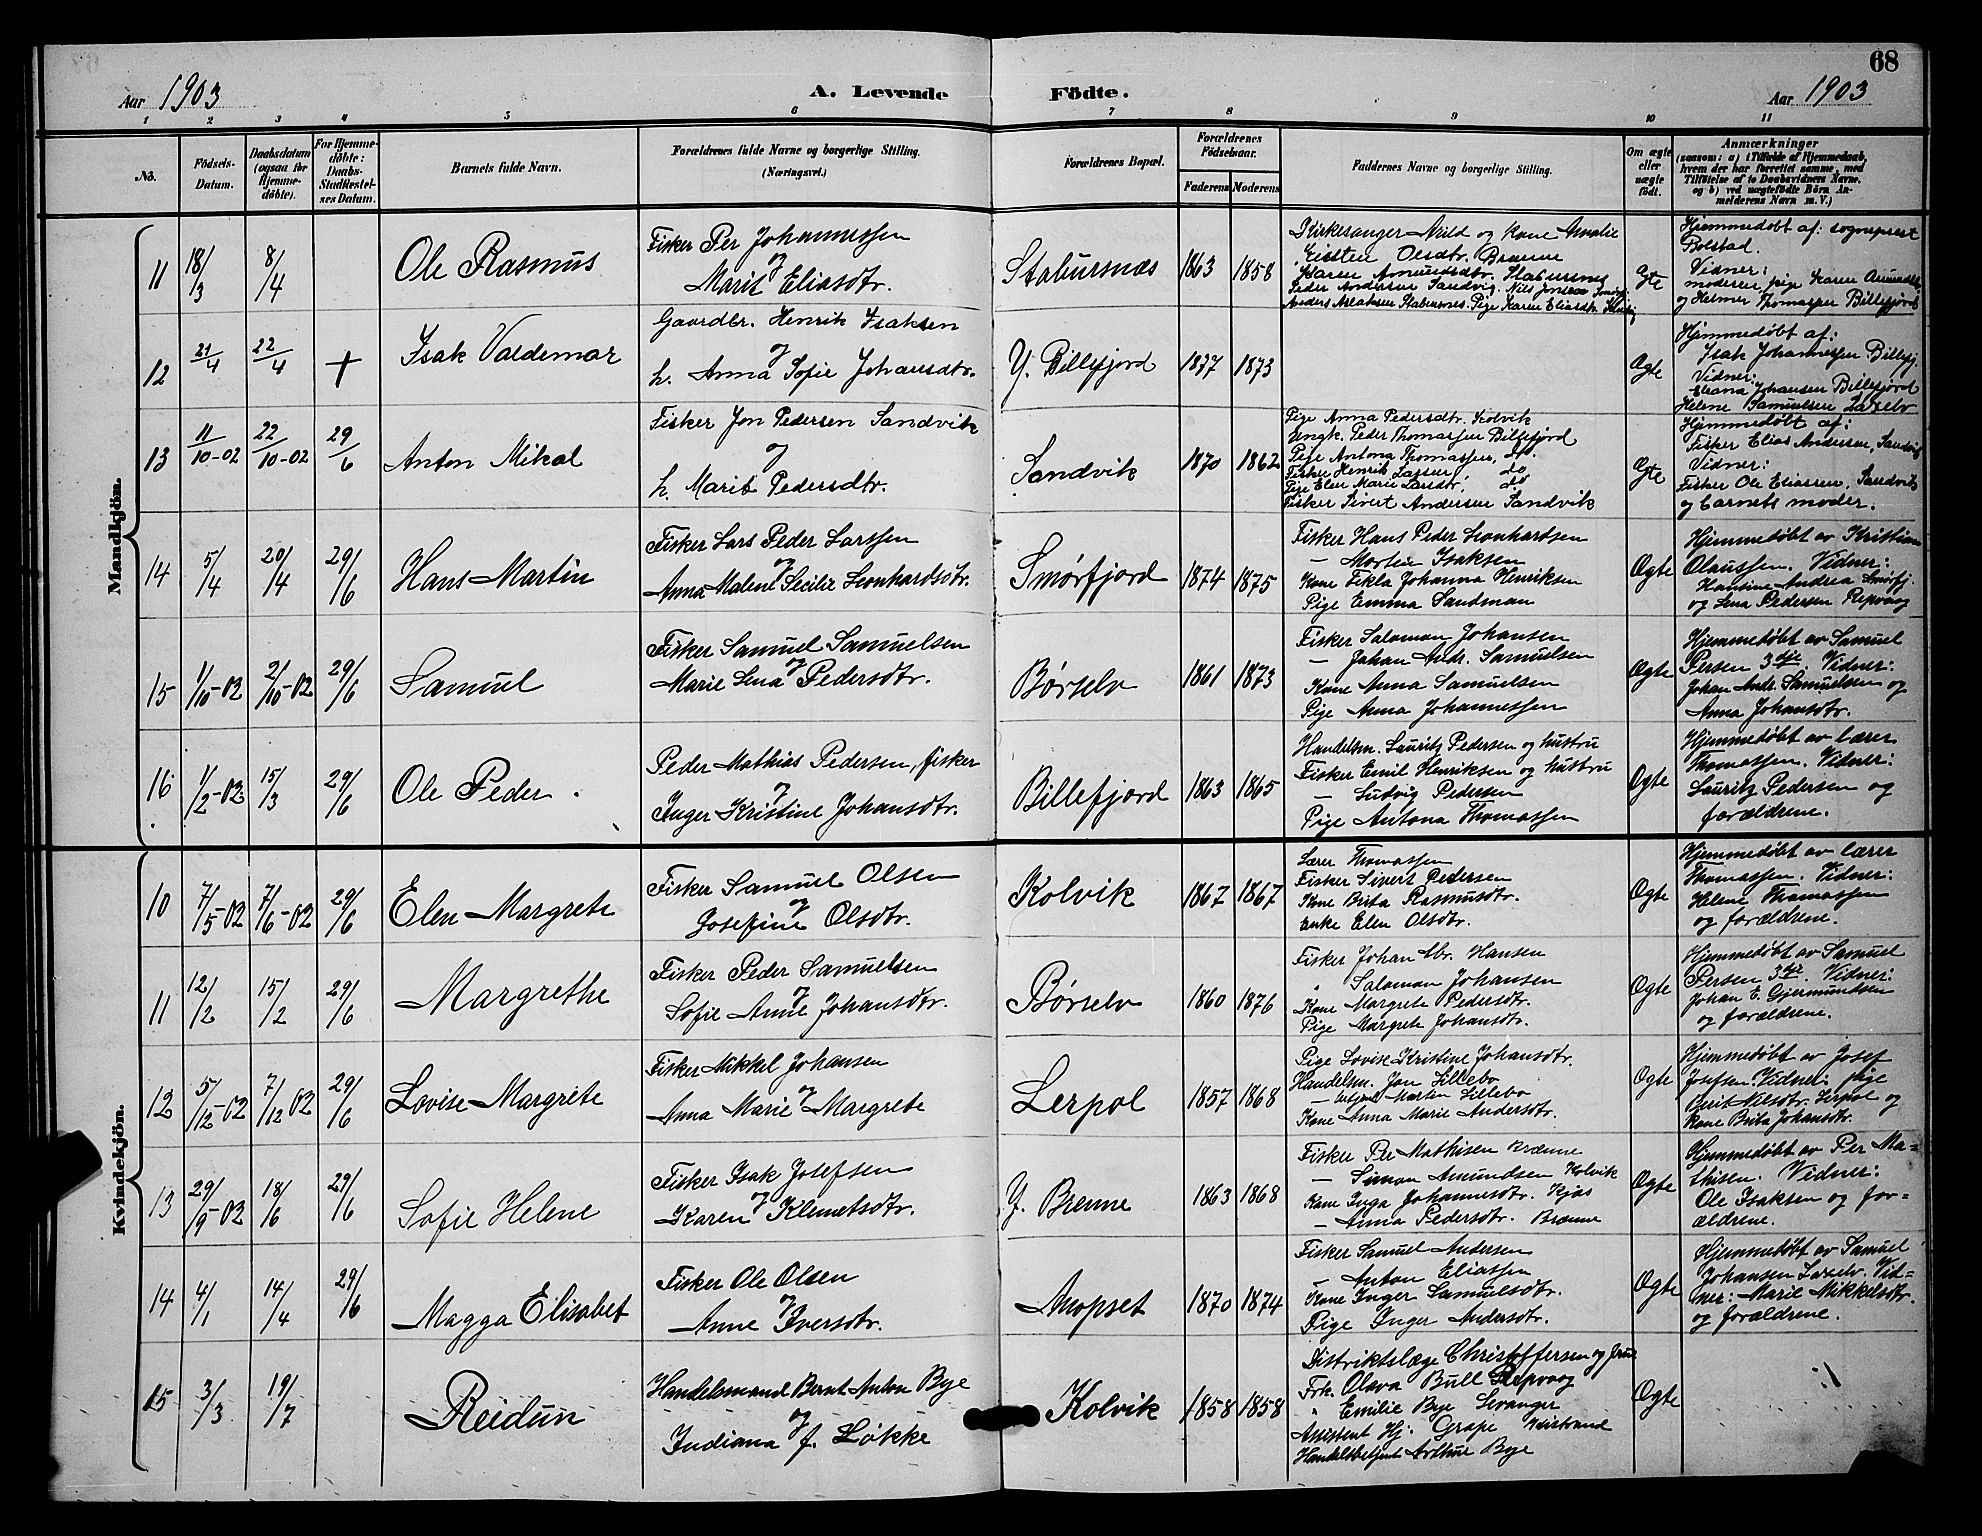 68
Aar 1903
A. Levende Födte.
Aar 1903
1 2 3 4 5 6 7 8 9 10 11
No.
Födsels-Datum.
Daabsdatum (ogsaa for Hjemmedöbte).
For Hjemmedöbte: Daabs-Stadfæstelses Datum.
Barnets fulde Navn.
Forældrenes fulde Navne og borgerlige Stilling.
(Næringsvei.)
Forældrenes Bopæl.
Forældrenes Födselsaar.
Faderens Moderens
Faddernes Navne og borgerlige Stilling.
Om ægte eller uægte födt.
Anmærkninger
(saasom: a) i Tilfælde af Hjemmedaab,
hvem der har forrettet samme, med
Tilföielse af to Daabsvidners Navne,
og b) ved uægtefödte Börn An-
melderens Navn m. V.)
Mandkjön.
11 18/3 8/4
Ole Rasmus
Fisker Per Johannessen
og
Marit Eliasdtr.
Stabursnæs 1863 1858
Kirkesanger Mild og Kone Amalie
Kirsten Olsdtr. Brænne
Karen Amundsdtr. Stabursnes
Peder Andersen Sandvig. Nils Jonsen
Anders Aslaksen Stabursnes. Pige Karen Eliasdtr.
Ægte
Hjemmedøbt af: sogneprest
Bolstad.
Vidner:
moderen, pige Karen Amundsdtr.
og Helmer Thomassen Billefjord
12 21/4 22/4 +
Isak Valdemar
Gaardbr. Henrik Isaksen
og
h. Anna Sofie Johansdtr.
Y. Billefjord 1877 1873
Ægte
Hjemmedøbt af:
Isak Johannessen Billefj.
Vidner:
Eliana Johansen Billefjord
Helene Samuelsen Laxelv
13 11/10-02 22/10-02 29/6
Anton Mikal
Fisker Jon Pedersen Sandvik
og
h. Marit Pedersdtr.
Sandvik 1870 1862
Pige Anna Pedersdtr. Kolvik
Ungk. Peder Thomassen Billefjord
Pige Antona Thomassen, do.
Fisker Henrik Lassen do
Pige Elen Marie Larsdtr. do
Fisker Sivert Andersen Sandvik
Ægte
Hjemmedøbt af:
Fisker Elias Andersen, Sandvik
Vidner:
Fisker Ole Eliassen, Sandvik
og barnets moder.
14 5/4 20/4 29/6
Hans Martin
Fisker Lars Peder Larssen
og
Anna Malene Secilie Leonhardsdtr.
Smørfjord 1874 1875
Fisker Hans Peder Leonhardsen
— Morten Isaksen
Kone Tekla Johanna Henriksen
Pige Emma Sandman
Ægte
Hjemmedøbt av Kristian
Olaussen. Vidner:
Hansine Andrea Smørfj.
og Lena Pedersen Repvaag
15 1/10-02 2/10-02 29/6
Samuel
Fisker Samuel Samuelsen
og
Marie Lena Pedersdtr.
Børselv 1861 1873
Fisker Salamon Johansen
— Johan Andr. Samuelsen
Kone Anna Samuelsen
Pige Anna Johannessen
Ægte
Hjemmedøbt av Samuel
Persen 3dje. Vidner:
Johan Andr. Samuelsen og
Anna Johansdtr.
16 1/2-02 15/3 29/6
Ole Peder.
Peder Mathias Pedersen, fisker
og
Inger Kristine Johansdtr.
Billefjord 1863 1865
Handelsm. Lauritz Pedersen og hustru
Fisker Emil Henriksen og hustru
— Ludvig Pedersen
Pige Antona Thomassen
Ægte
Hjemmedøbt av lærer
Thomassen. Vidner:
Lauritz Pedersen og
forældrene.
Kvindekjön.
10 7/5-02 7/6-02 29/6
Elen Margrete
Fisker Samuel Olsen
og
Josefine Olsdtr.
Kolvik 1867 1867
Lærer Thomassen
Fisker Sivert Pedersen
Kone Brita Rasmusdtr.
Enke Elen Olsdtr.
Ægte
Hjemmedøbt av lærer
Thomassen. Vidner:
Helene Thomassen
og forældrene.
11 12/2 15/2 29/6
Margrethe
Fisker Peder Samuelsen
og
Sofie Anne Johansdtr.
Børselv 1860 1876
Fisker Johan Abr. Hansen
" Salamon Johansen
Kone Margrete Pedersdtr.
Pige Margrete Johansdtr.
Ægte
Hjemmedøbt av Samuel
Persen 3dje. Vidner:
Johan E. Gjermundsen
og forældrene.
12 5/12-02 7/12 02 29/6
Lovise Margrete
Fisker Mikkel Johansen
og
Anna Marie Margrete
Lerpol 1857 1868
Pige Lovise Kristine Johansdtr.
Handelsm. Jon Lillebo
— Martin Lillebo
Kone Anna Marie Andersdtr.
Ægte
Hjemmedøbt av Josef
Josefsen. Vidner: pige
Berit Nilsdtr. Lerpol og
kone Brita Johansdtr.
13 29/9-02 18/6 29/6
Sofie Helene
Fisker Isak Josefsen
og
Karen Klemetsdtr.
Y. Brenne 1863 1868
Fisker Per Mathisen Brænne
— Simon Amundsen Kolvik
Kone Inga Johannesdtr. Kjæs
— Anna Pedersdtr. Brænne
Ægte
Hjemmedøbt av Per Ma-
thisen. Vidner:
Ole Isaksen og for-
ældrene.
14 4/1 14/4 29/6
Magga Elisabet
Fisker Ole Olsen
og
Anne Iversdtr.
Anopset 1870 1874
Fisker Samuel Andersen
Anton Eliassen
Kone Inger Samuelsdtr.
Pige Inger Andersdtr.
Ægte
Hjemmedøbt av Samuel
Johansen Laxelv. Vid-
ner: Marie Mikkelsdtr.
og forældrene.
15 3/3 19/7
Reidun
Handelsmand Bernt Anton Bye
og
Indiana f. Løkke
Kolvik 1858 1858
Distriktslæge Christoffersen og frue
Frk. Olava Bull Repvaag
" Emilie Bye Levanger
Assistent Hj. Grape Kistrand
Handelsbetjent Arthur Bye
Ægte